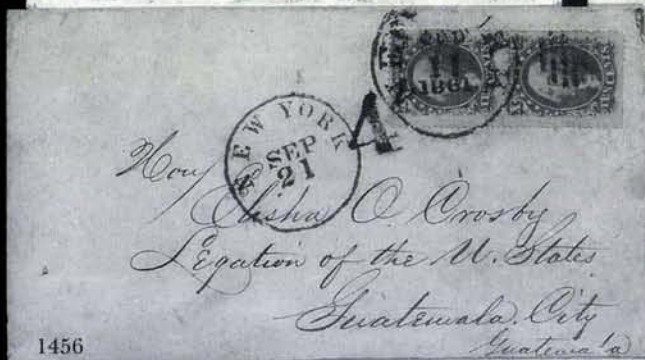 SEP
11
1861
NEW YORK
SEP
21
4
Hon
Elisha O. Crosby
Legation of the U. States
Guatemala. City
Guatemala
1456